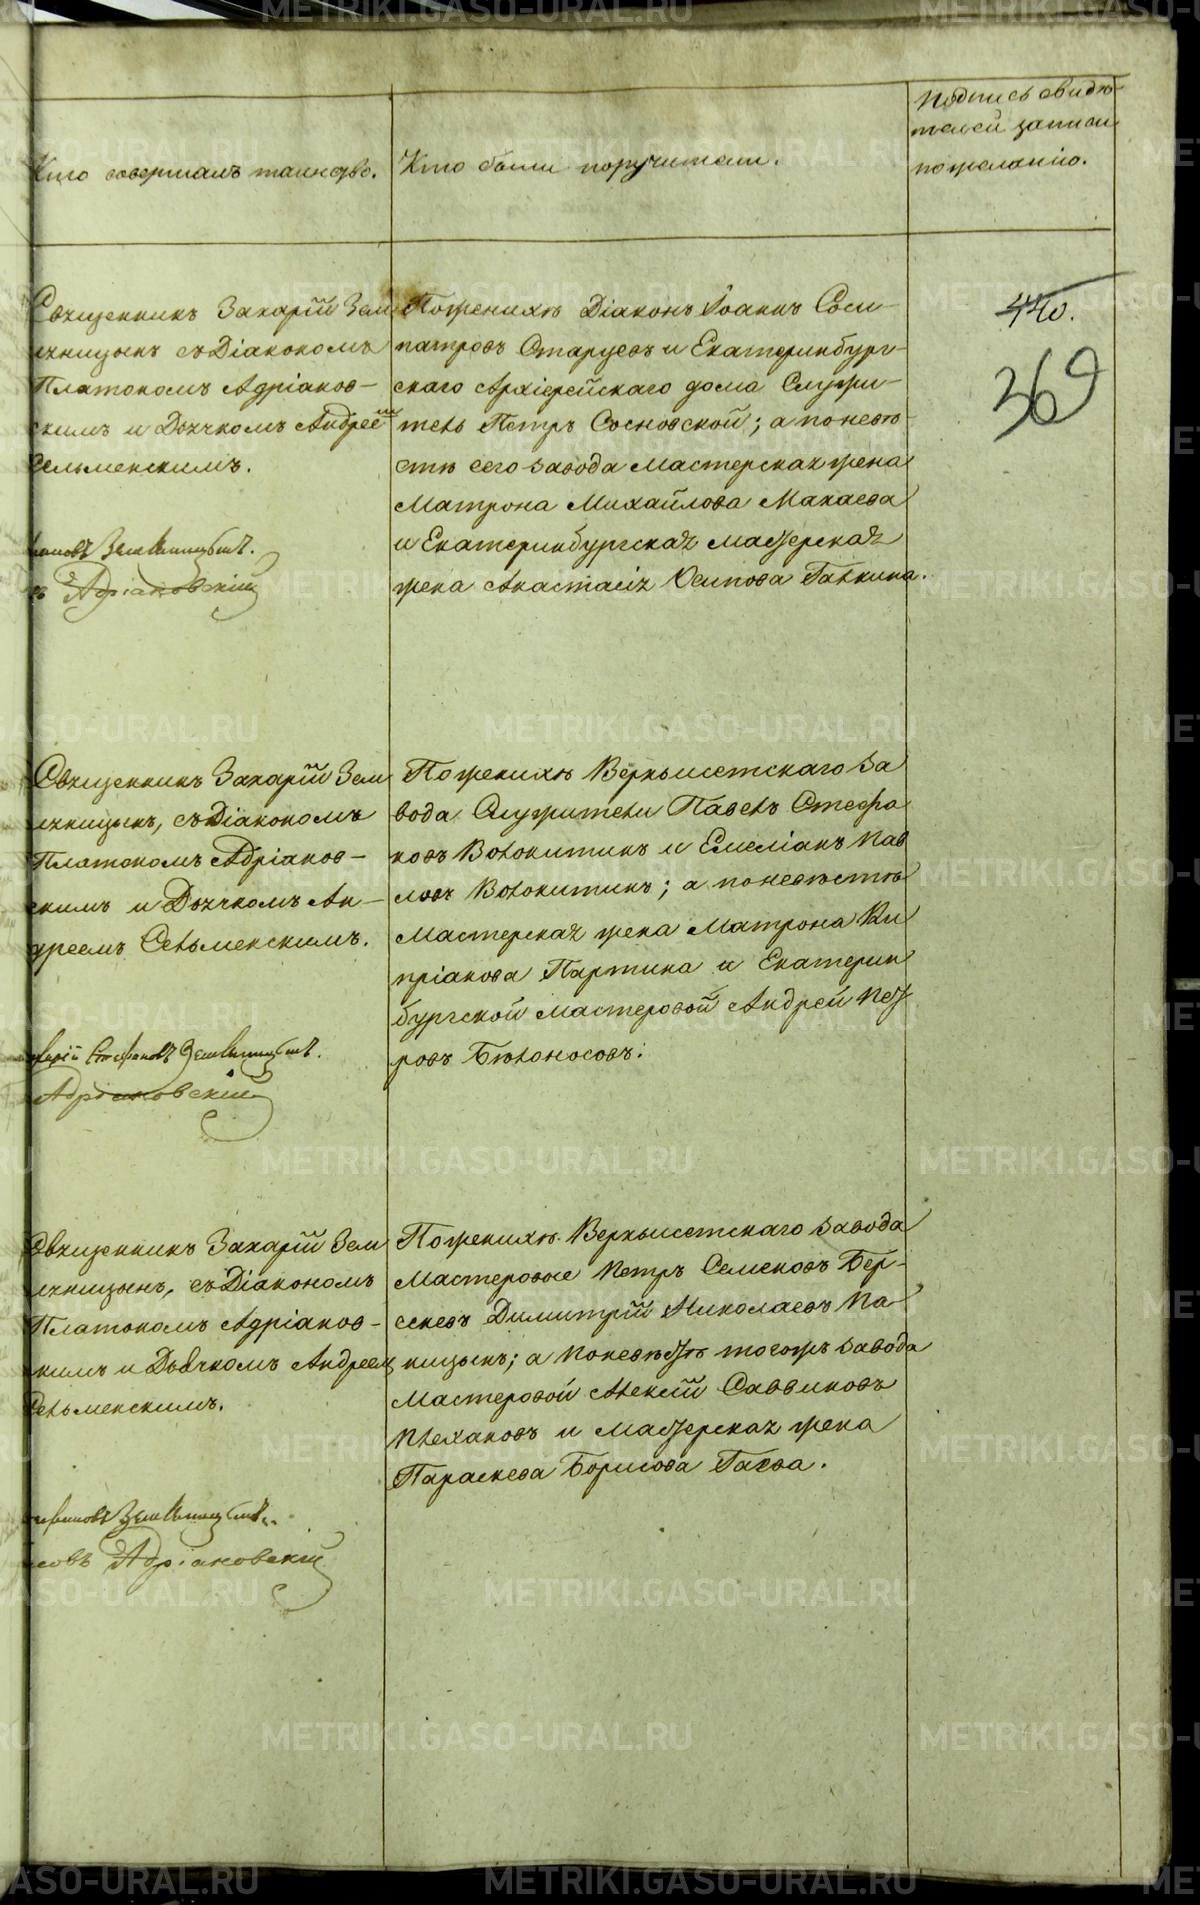 Кто совершалъ таинство.
Кто были поручители.
Подпись свидѣ-
телей записи
по желанію.
440.
369
Священникъ Захарій Зем
ляницынъ съ Діакономъ
Платономъ Адріанов-
скимъ и Дьячкомъ Андреемъ
Сельменскимъ.
Земляницынъ.
Адріановскій
По женихѣ Діаконъ Іоаннъ Соси-
патровъ Старцевъ и Екатеринбург-
скаго Архіерейскаго дома Служи-
тель Петръ Сосновской; а по невѣ-
стѣ сего завода Мастерская жена
Матрона Михайлова Макаева
и Екатеринбургская мастерская
жена Анастасія Осипова Галкина.
Священникъ Захарій Зем
ляницынъ, съ Діакономъ
Платономъ Адріанов-
скимъ и Дьячкомъ Ан-
дреемъ Сельменскимъ.
Стефановъ Земляницынъ.
Адріановскій
По женихѣ Верхъисетскаго За
вода Служители Павелъ Стефа
новъ Волокитинъ и Емеліанъ Пав
ловъ Волокитинъ; а по невѣстѣ
Мастерская жена Матрона Ки
пріанова Партина и Екатерин
бургской мастеровой Андрей Пет
ровъ Бѣлоносовъ.
Священникъ Захарій Зем
ляницынъ, съ Діакономъ
Платономъ Адріанов-
скимъ и Дьячкомъ Андреем
Сельменскимъ.
Земляницынъ.
Адріановскій
По женихѣ Верхъисетскаго завода
Мастеровые Петръ Семеновъ Бер-
сеневъ Димитрій Николаевъ Па
ницынъ; а по невѣстѣ того жъ завода
Мастеровой Алексій Саввиновъ
Плехановъ и мастерская жена
Параскева Борисова Гаева.
METRIKI.GASO-URAL.RU